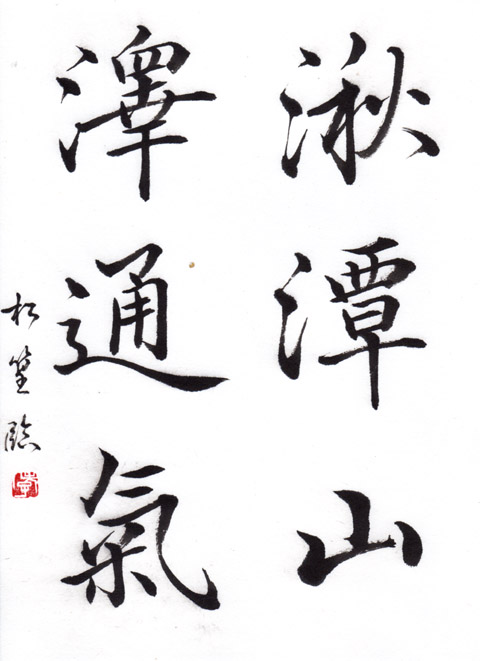 湫潭山
澤通氣
松臨